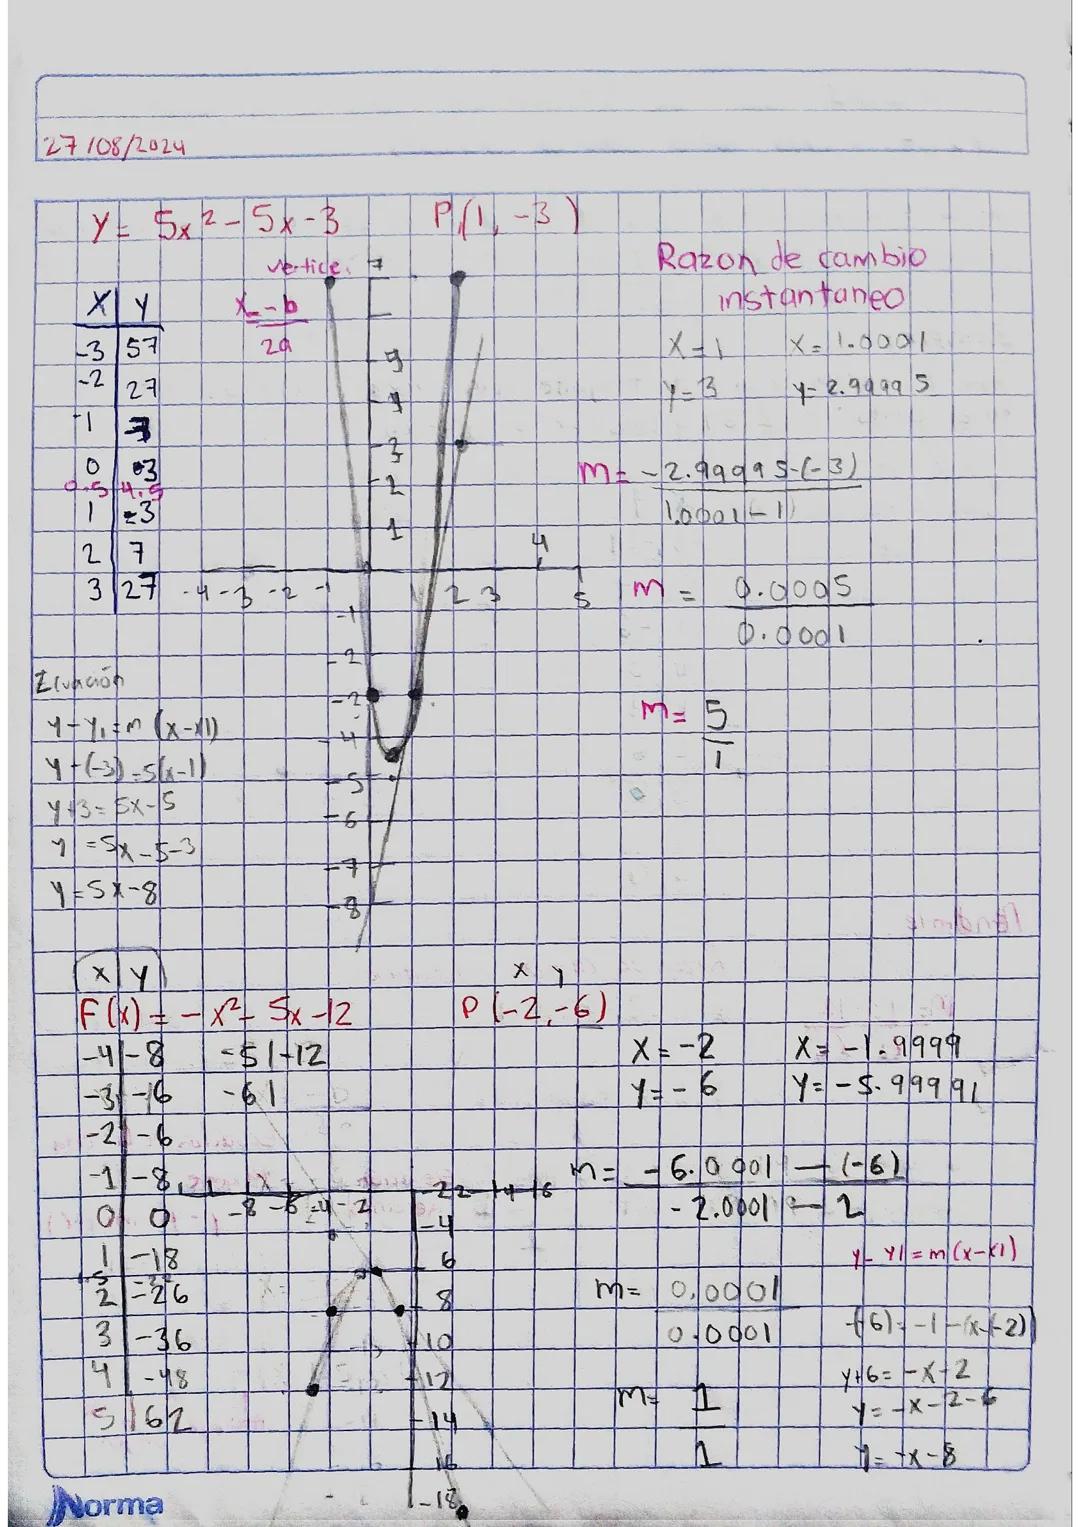 27/08/2024
Y= 5x²-5x-3 P(1, -3)
vertice.
x=-b
2a
Razon de cambio
instantaneo
X Y
-3 57
-2 27
-1
0 -3
0.5 4.5
1 -3
2 7
3 27
7
5
4
3
2
1
-4 -3 -2 -1 1 2 3 4 5
-1
-2
-3
-4
-5
-6
-7
-8
X=1 X=1.0001
y=3 y=2.99995
m= -2.99995-(-3)
1.0001-1
m = 0.0005
0.0001
m= 5
1
Ecuación
y-y1=m (x-x1)
y-(-3)=5(x-1)
y+3=5x-5
y=5x-5-3
y=5x-8
x y
F(x)= -x²-5x-12
x y
P(-2,-6)
-4 -8 =51-12
-3 -6 -61
-2 -6
-1 -8
0 0
1 -18
2 -26
3 -36
4 -48
5 62
-8 -6 -4 -2 -2 2 4 6
-4
6
8
10
12
14
16
-18
X=-2 X=-1.9999
Y=-6 Y=-5.99991
m= -6.0001 - (-6)
-2.0001 - 2
m= 0.0001
0.0001
m= 1
1
y-y1=m(x-x1)
-(6)=-1-(x-(-2))
y+6=-x-2
y=-x-2-6
y=-x-8
Norma